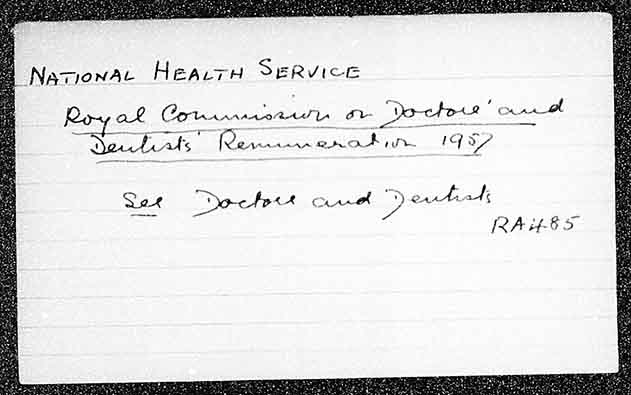 NATIONAL HEALTH SERVICE
Royal Commission on Doctors' and
Dentists' Remuneration 1957
See Doctors and Dentists
RA485